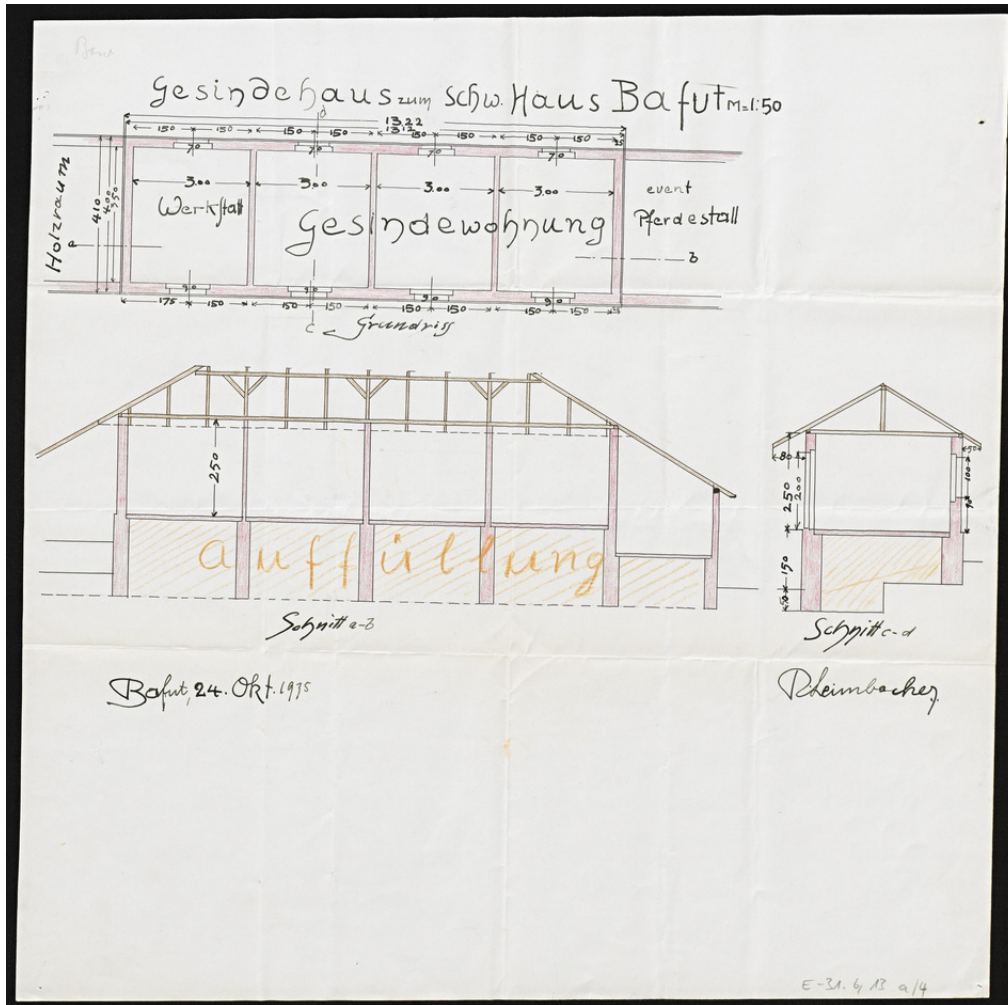 Gesindehaus zum Schw. Haus Bafut M=1:50
d
13.22
13.12
150 150 150 150 150 150 150 150 25
70 70 70 70
3.00 3.00 3.00 3.00
Holzraum
a
410
400
350
Werkstatt
Gesindewohnung
event
Pferdestall
b
90 90 90 90
175 150 150 150 150 150 150 150 25
c
Grundriss
250
auffüllung
Schnitt a-b
80
50
250
200
100
90
150
50
Schnitt c-d
Bafut, 24. Okt. 1935
Rheimbacher
E-31. 6, 13 a/4